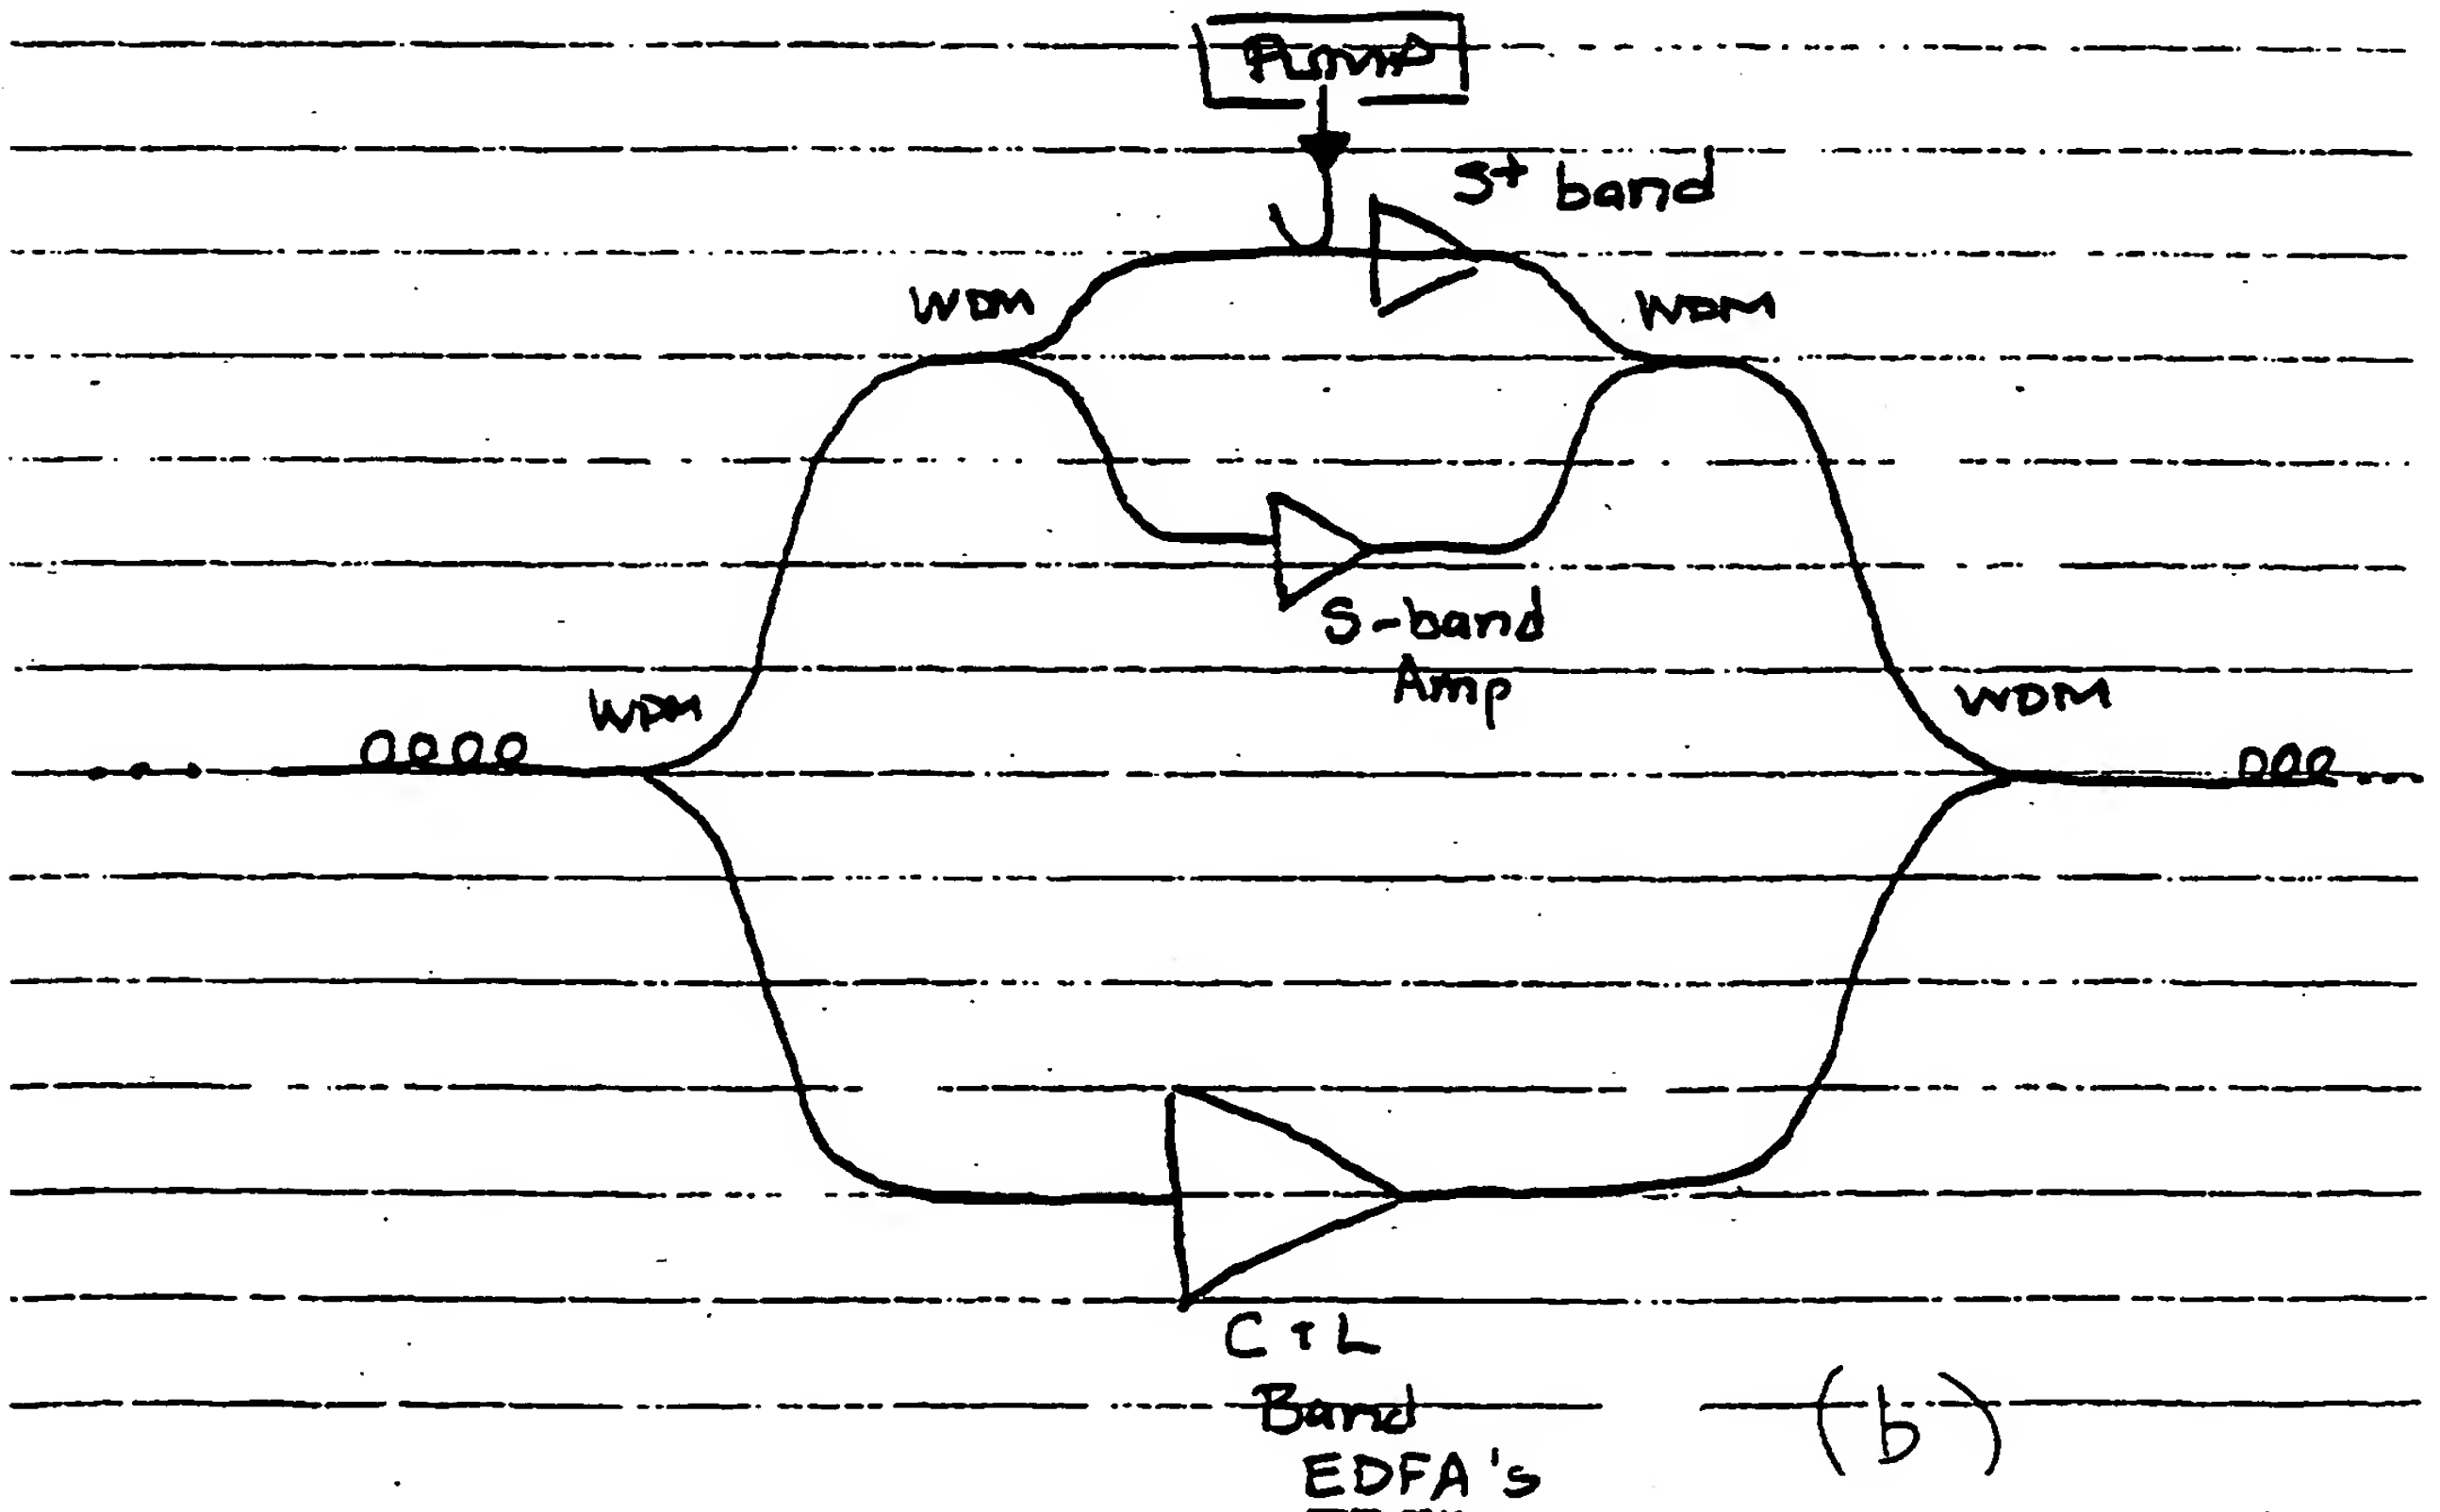 Pump
S+ band
WDM
WDM
S-band
Amp
WDM
WDM
C+L
Band
EDFA's
(b)